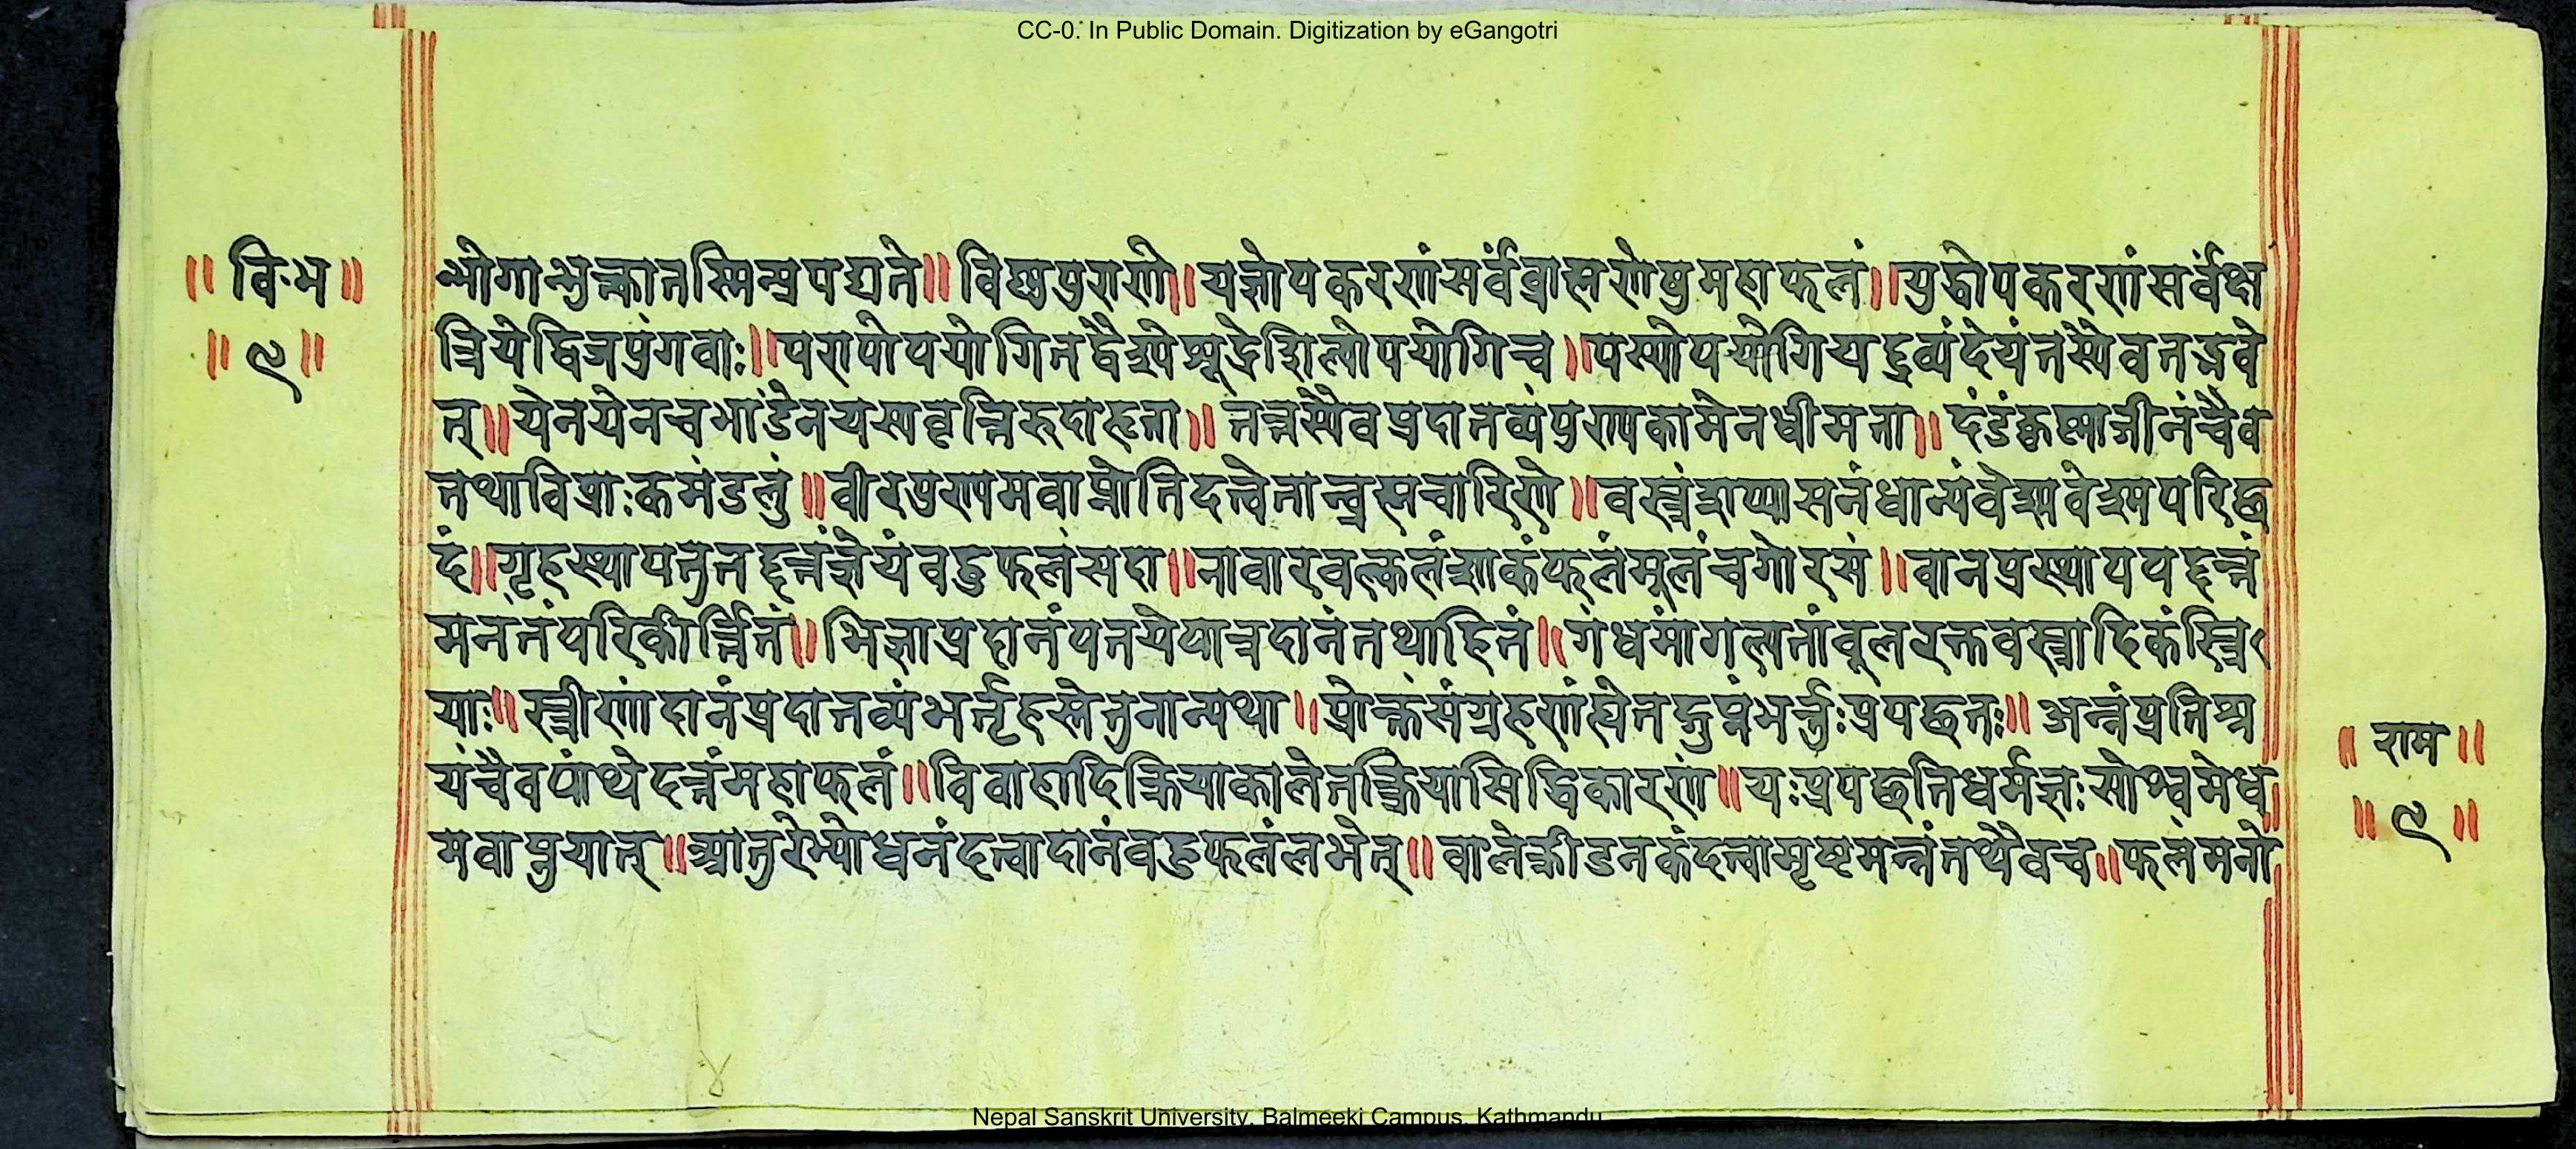 CC-0. In Public Domain. Digitization by eGangotri
॥ वि॰भ ॥
॥ ९ ॥
भोगान्भुक्त्वातस्मिन्प्रपद्यते॥ विष्णुपुराणे॥ यज्ञोपकरणंसर्वंब्राह्मणेषुमहाफलं॥ युद्धोपकरणंसर्वंक्ष
त्रियेद्विजपुंगवाः॥ पण्योपयोगितद्वैश्येशूद्रेशिल्पोपयोगिच॥ यस्योपयोगियद्द्रव्यंदेयंतस्यैवतद्भवे
त्॥ येनयेनचभांडेनयस्यवृत्तिरुदाहृता॥ तत्तस्यैवप्रदातव्यंपुण्यकामेनधीमता॥ दंडंकृष्णाजीनंचैव
तथाविप्राःकमंडलुं॥ वीरपुण्यमवाप्नोतिदत्त्वैतान्ब्रह्मचारिणे॥ वस्त्रंशय्यासनंधान्यंवेश्मवेश्मपरिछ
दं॥ गृहस्थायतुतद्दत्तंज्ञेयंवहुफलंसदा॥ नीवारवल्कलंशाकंफलंमूलंचगोरसं॥ वानप्रस्थाययद्दत्तं
मनंतंपरिकीर्त्तितं॥ भिक्षाप्रदानंयतयेपात्रदानंतथाहितं॥ गंधमांगल्यतांवूलरक्तवस्त्रादिकंस्त्रि
याः॥ स्त्रीणांदानंप्रदातव्यंभर्तृहस्तेतुनान्यथा॥ प्रोक्तंसंग्रहणंह्येतद्गुप्तंभर्त्तुःप्रयछतः॥ अन्नंप्रतिश्र
यंचैवपांथेदत्तंमहाफलं॥ विवाहादिक्रियाकालेतत्क्रियासिद्धिकारणं॥ यःप्रयछतिधर्मज्ञःसोश्वमेध
मवाप्नुयात्॥ आतुरेभ्योधनंदत्त्वादानंवहुफलंलभेत्॥ वालेक्रीडनकंदत्त्वामृष्टमन्नंतथैवच॥ फलंमनो
॥ राम ॥
॥ ९ ॥
Nepal Sanskrit University, Balmeeki Campus, Kathmandu